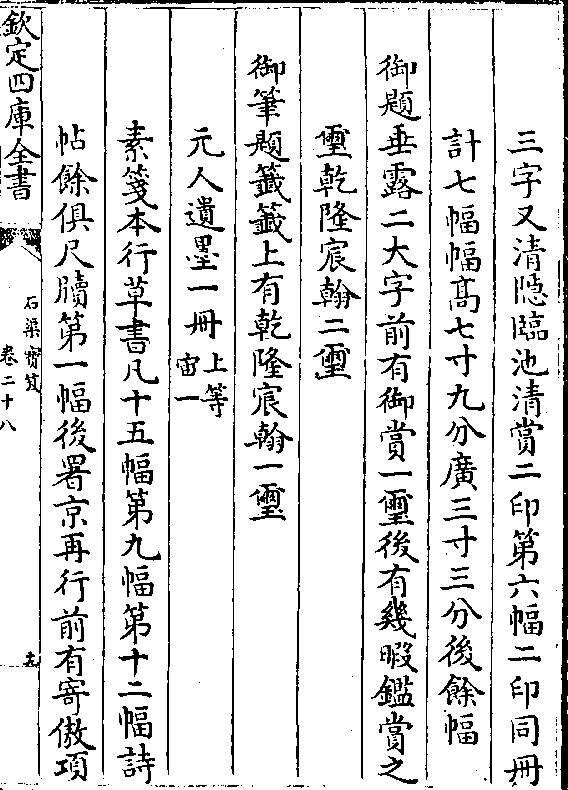 三字又清隠臨池清賞二印第六幅二印同冊
計七幅幅髙七寸九分廣三寸三分後餘幅
御題垂露二大字前有御賞一璽後有幾暇鑑賞之
璽乾隆宸翰二璽
御筆題籖籖上有乾隆宸翰一璽
元人遺墨一冊上等
宙一
素箋本行草書凡十五幅第九幅第十二幅詩
帖餘俱尺牘第一幅後署京再行前有寄傲項
欽定四庫全書
石渠寳笈
卷二十八